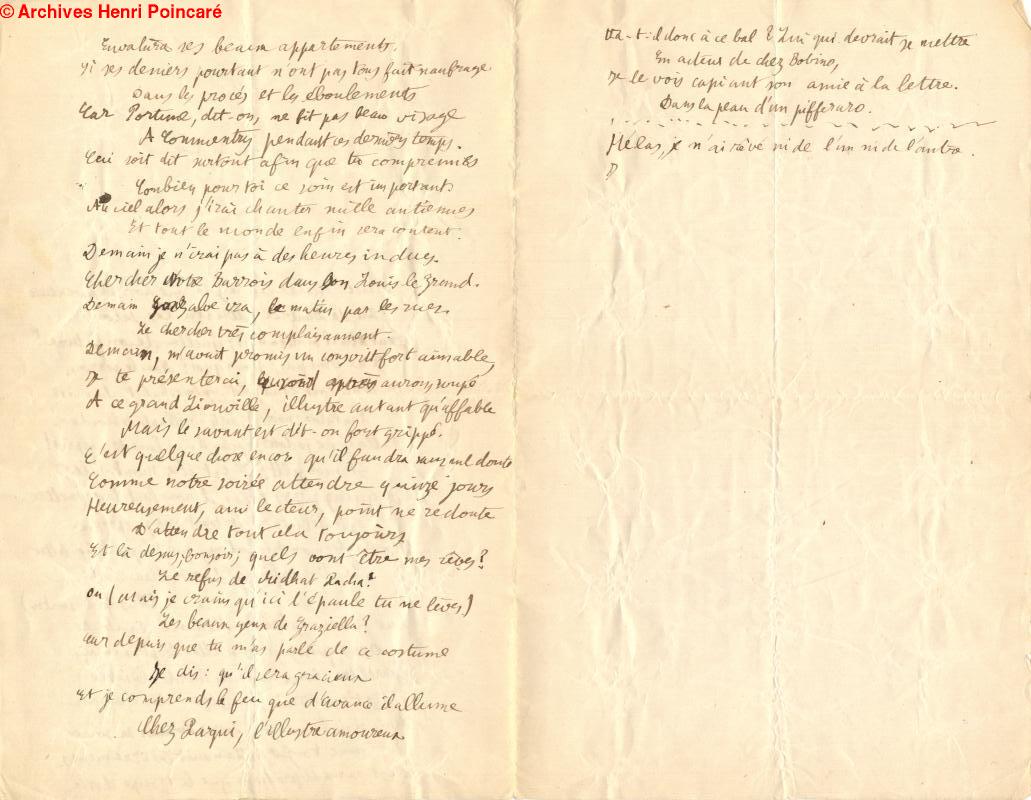 © Archives Henri Poincaré
Envahira ses beaux appartements.
Si ses deniers pourtant n'ont pas tous fait naufrage
Dans les procés et les éboulements
Car Fortune, dit-on, ne fit pas beau visage
A Commentry pendant ces derniers temps.
Ceci soit dit surtout afin que tu comprennes
Combien pour toi ce soin est important
Au ciel alors j'irai chanter mille antiennes
Et tout le monde enfin sera content.
Demain je n'irai pas à des heures indues.
Chercher Notre Barrois dans son Louis le Grand.
Demain Gonzalve ira, le matin par les rues
Le chercher très complaisamment.
Demain, m'avait promis un conscrit fort aimable,
Je te présenterai, quand après aurons soupé
A ce grand Liouville, illustre autant qu'affable
Mais le savant est dit-on fort grippé.
C'est quelque chose encore qu'il faudra sans nul doute
Comme notre soirée attendre quinze jours
Heureusement, ami lecteur, point ne redoute
D'attendre tout cela toujours
Et là dessus, bonsoir; quels vont être mes rêves?
Le refus de Midhat Pacha?
Ou (mais je crains qu'ici l'épaule tu ne lèves)
Les beaux yeux de Graziella?
Car depuis que tu m'as parlé de ce costume
Je dis: qu'il sera gracieux
Et je comprends le feu que d'avance il allume
Chez Parqui, l'illustre amoureux
Va-t-il donc à ce bal? Lui qui devrait se mettre
En acteur de chez Bobino,
Je le vois copiant son amie à la lettre.
Dans la peau d'un pifferaro.
Hélas, je n'ai rêvé ni de l'un ni de l'autre.